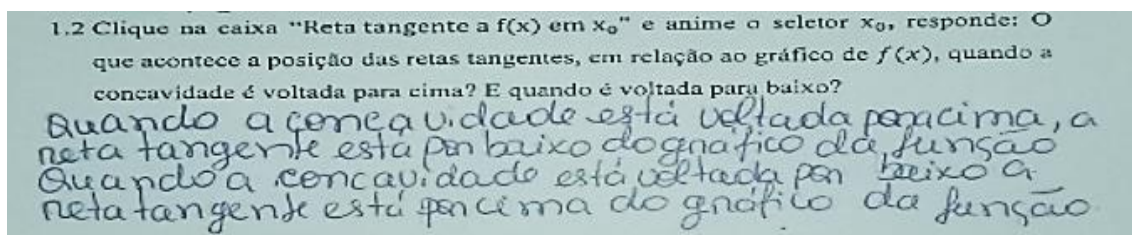 1.2 Clique na caixa “Reta tangente a f(x) em x₀” e anime o seletor x₀, responde: O
que acontece a posição das retas tangentes, em relação ao gráfico de f(x), quando a
concavidade é voltada para cima? E quando é voltada para baixo?
Quando a concavidade está voltada para cima, a
reta tangente esta por baixo do grafico da função
Quando a concavidade está voltada por baixo a
reta tangente está por cima do gráfico da função